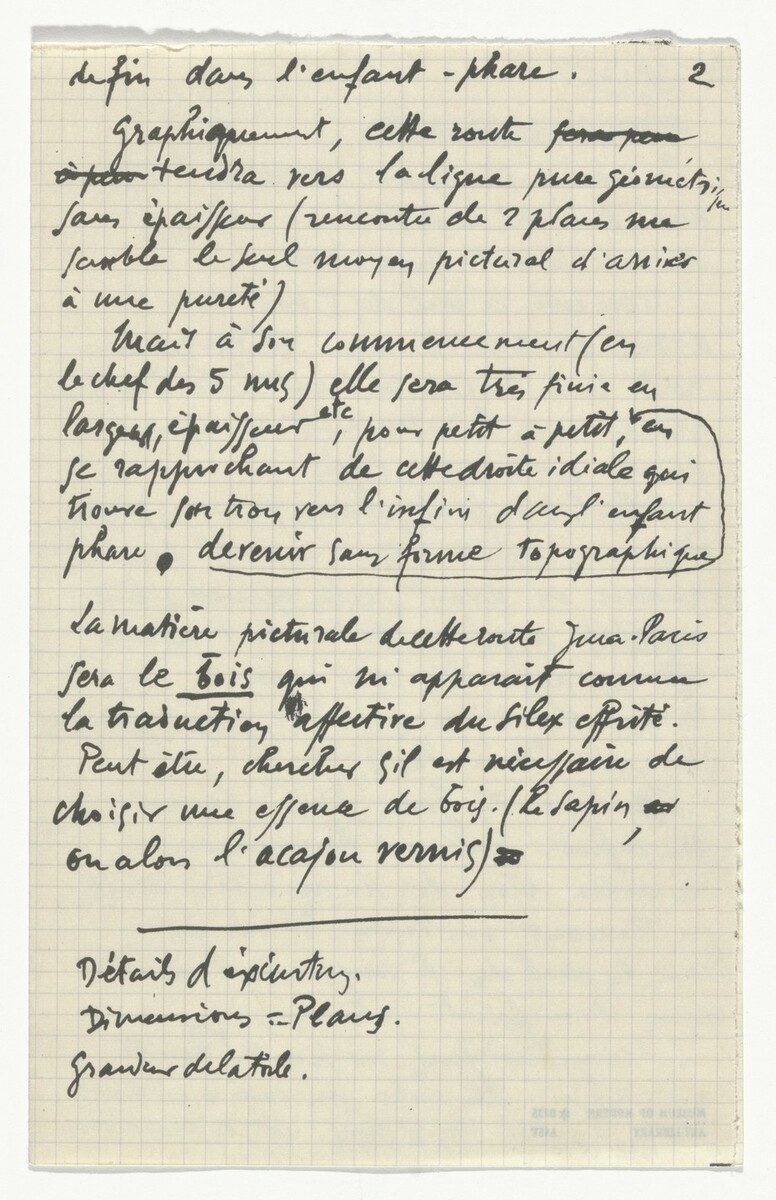 de fin dans l'enfant-phare. 2
Graphiquement, cette route sera peu
à peu tendra vers la ligne pure géométrique
sans épaisseur (rencontre de 2 plans me
semble le seul moyen pictural d'arriver
à une pureté)
Mais à son commencement (en
le chef des 5 nus) elle sera très finie en
largeur, épaisseur etc, pour petit à petit, en
se rapprochant de cette droite idéale qui
trouve son trou vers l'infini dans l'enfant
phare. devenir sans forme topographique
La matière picturale de cette route Jura-Paris
sera le bois qui m'apparait comme
la traduction affective du silex effrité.
Peut être, chercher s'il est nécessaire de
choisir une essence de bois. (le sapin,
ou alors l'acajou vernis)
Détails d'éxécution.
Dimensions = Plans.
Grandeur de la toile.
MUSEUM OF MODERN
ART LIBRARY